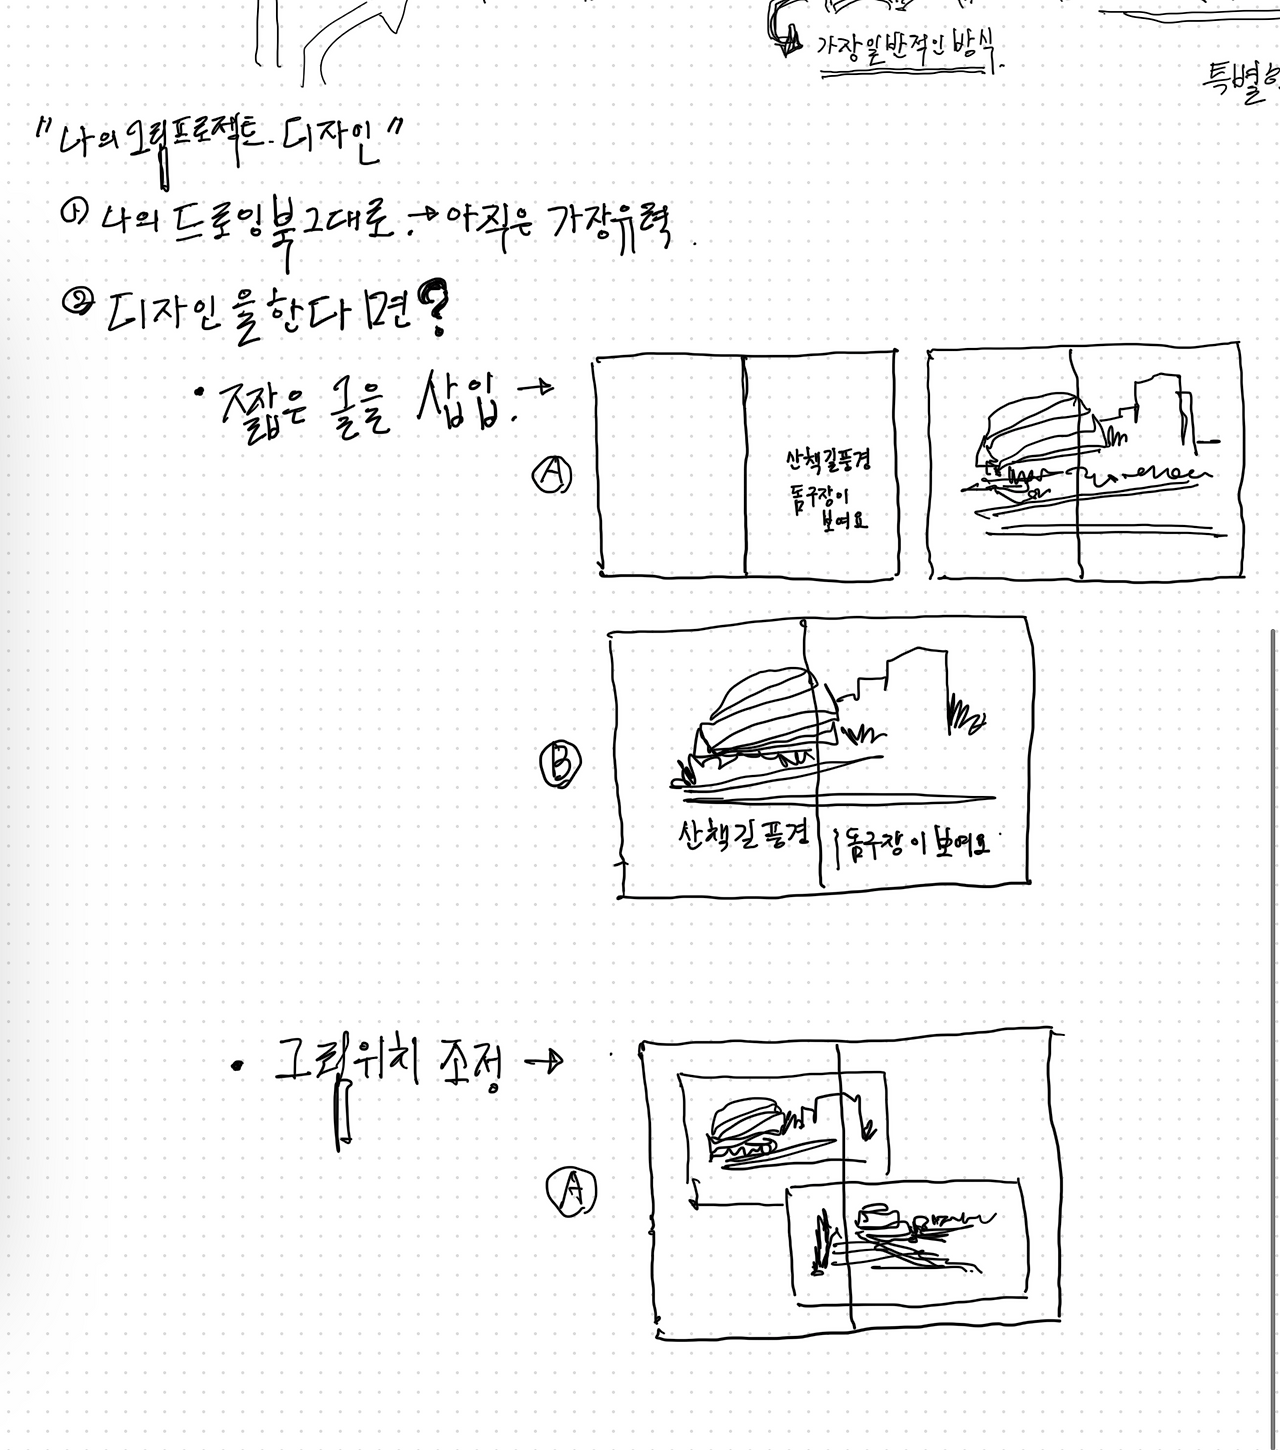 가장 일반적인 방식.
특별한
"나의 그림프로젝트 - 디자인"
① 나의 드로잉북 그대로. → 아직은 가장 유력.
② 디자인을 한다면?
• 짧은 글을 삽입. →
A
산책길풍경
돔구장이
보여요
B
산책길 풍경
돔구장이 보여요.
• 그림위치 조정 →
A